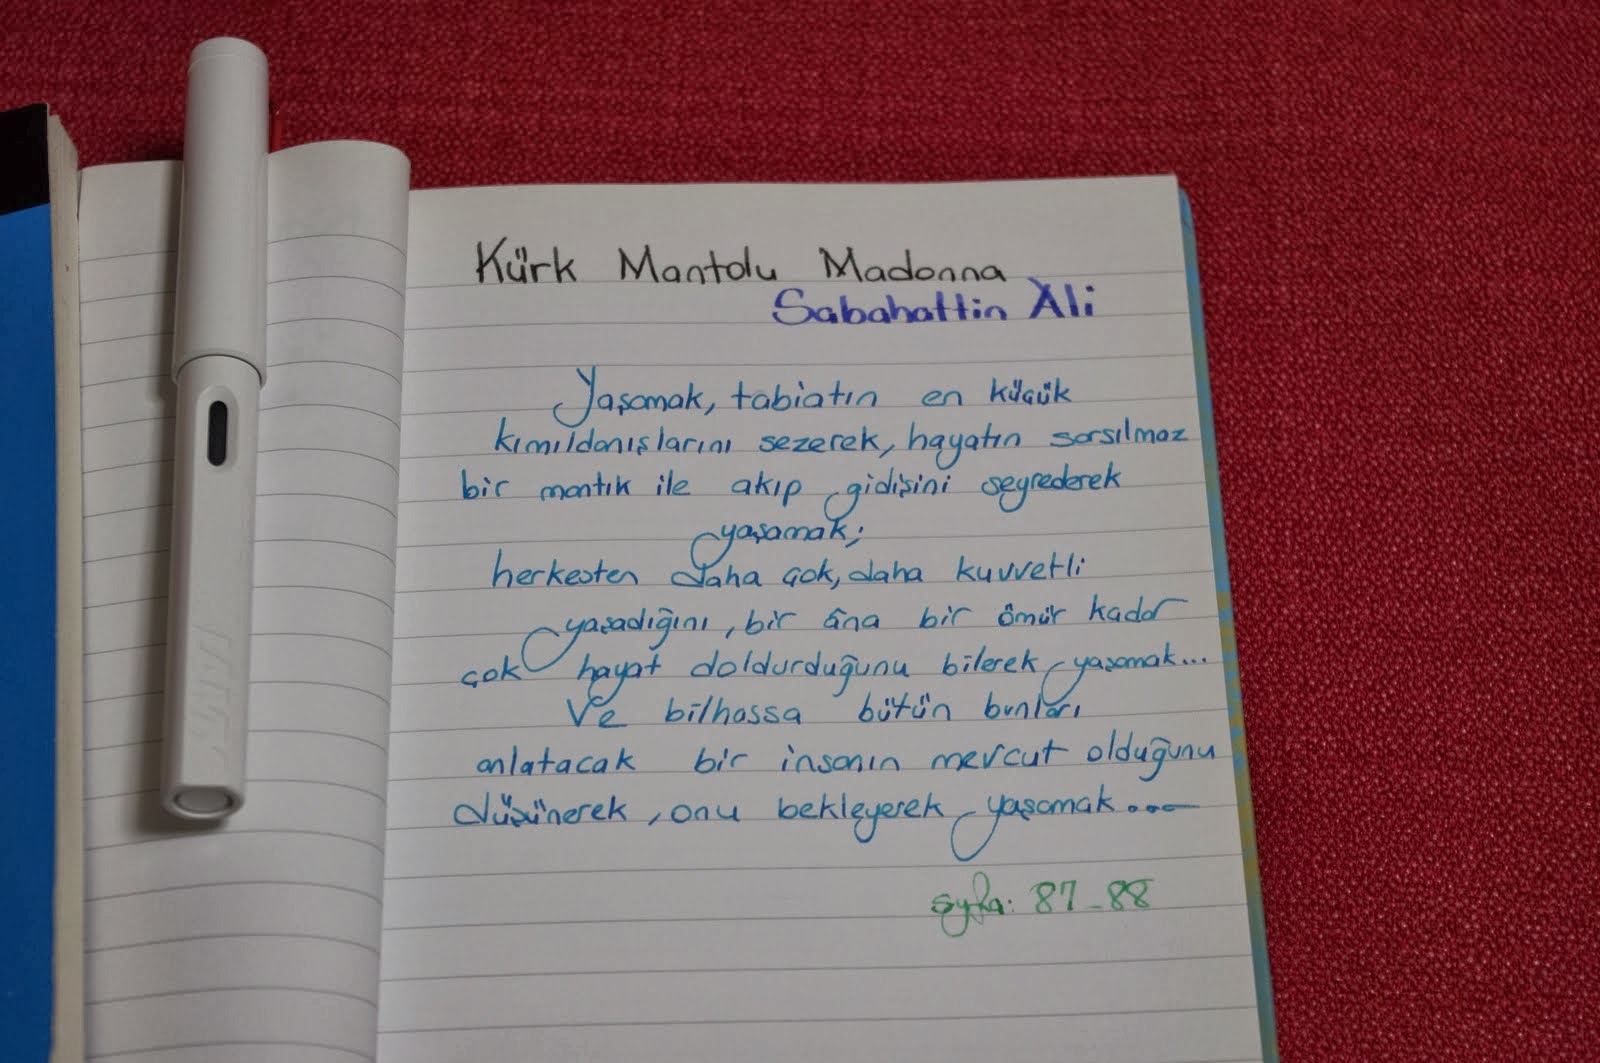 Kürk Mantolu Madonna
Sabahattin Ali
Yaşamak, tabiatın en küçük
kımıldanışlarını sezerek, hayatın sarsılmaz
bir mantık ile akıp gidişini seyrederek
yaşamak;
herkesten daha çok, daha kuvvetli
yaşadığını, bir âna bir ömür kadar
çok hayat doldurduğunu bilerek yaşamak...
Ve bilhassa bütün bunları
anlatacak bir insanın mevcut olduğunu
düşünerek, onu bekleyerek yaşamak...
syfa: 87-88
LAMY